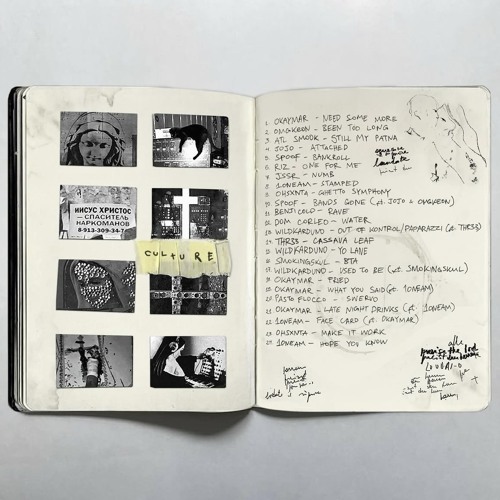 ИИСУС ХРИСТОС
— СПАСИТЕЛЬ
НАРКОМАНОВ
8-913-309-34-
CULTURE
1. OKAYMAR - NEED SOME MORE
2. OMGKEON - BEEN TOO LONG
3. ATL SMOOK - STILL MY PATNA
4. JOJO - ATTACHED
5. SPOOF - BANKROLL
6. RIZ - ONE FOR ME
7. JSSR - NUMB
8. 1ONEAM - STAMPED
9. OHSXNTA - GHETTO SYMPHONY
10. SPOOF - BANDS GONE (ft. JOJO & OMGKEON)
11. BENJICOLD - RAVE
12. DOM CORLEO - WATER
13. WILDKARDUNO - OUT OF KONTROL/PAPARAZZI (ft. THR33)
14. THR33 - CASSAVA LEAF
15. WILDKARDUNO - YO LANE
16. SMOKINGSKUL - BTA
17. WILDKARDUNO - USED TO BE (ft. SMOKINGSKUL)
18. OKAYMAR - FRIED
19. OKAYMAR - WHAT YOU SAID (ft. 1ONEAM)
20. PASTO FLOCCO - SWERVO
21. OKAYMAR - LATE NIGHT DRINKS (ft. 1ONEAM)
22. 1ONEAM - FACE CARD (ft. OKAYMAR)
23. OHSXNTA - MAKE IT WORK
24. 1ONEAM - HOPE YOU KNOW